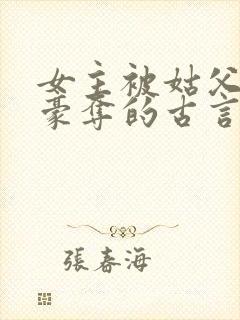 女主被姑父
豪奪的古言
張春海